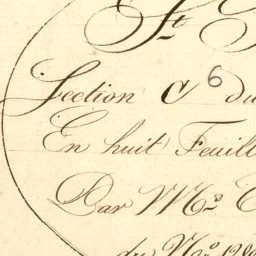 St
Section C 6 du
En huit Feuill
Par Mrs
du No